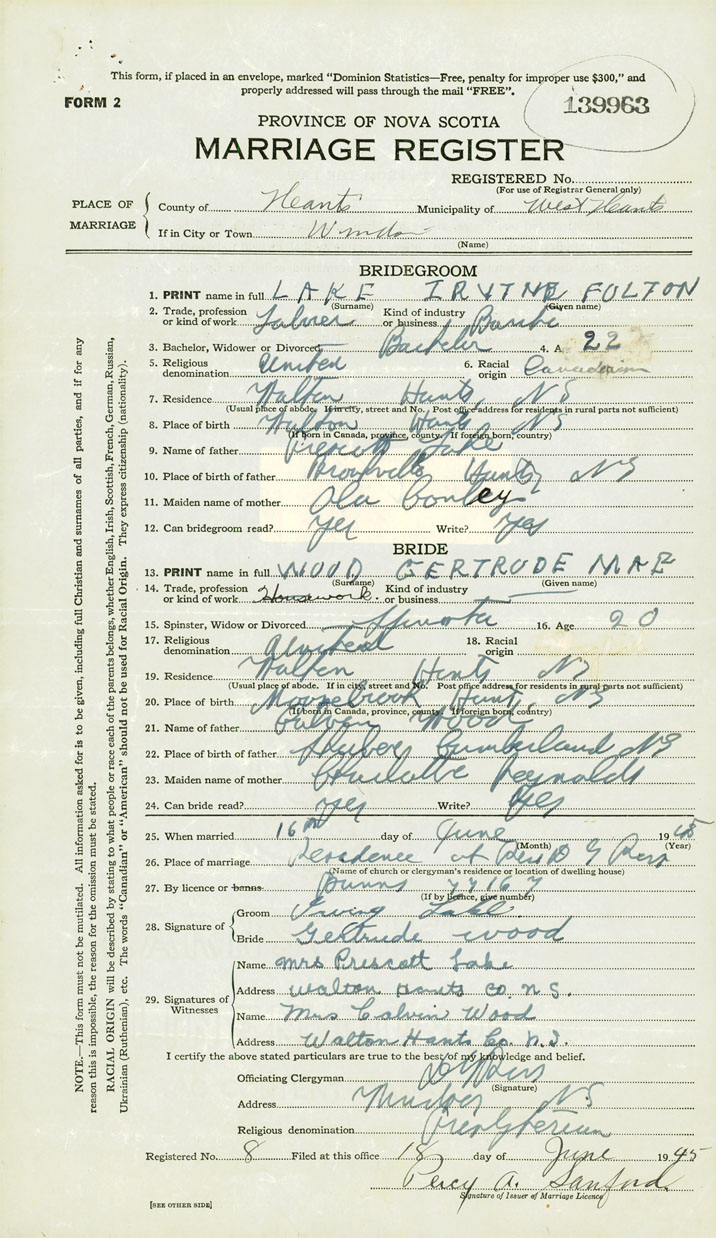 This form, if placed in an envelope, marked "Dominion Statistics—Free, penalty for improper use $300," and
properly addressed will pass through the mail "FREE".
FORM 2
139963
PROVINCE OF NOVA SCOTIA
MARRIAGE REGISTER
REGISTERED No.
(For use of Registrar General only)
PLACE OF MARRIAGE
County of Hants Municipality of West Hants
If in City or Town Windsor
(Name)
BRIDEGROOM
1. PRINT name in full LAKE IRVINE FULTON
(Surname) (Given name)
2. Trade, profession or kind of work Labrer Kind of industry or business
3. Bachelor, Widower or Divorced Bachelor 4. A 22
5. Religious denomination United 6. Racial origin Canadian
7. Residence Walton Hants, NS
(Usual place of abode. If in city, street and No. Post office address for residents in rural parts not sufficient)
8. Place of birth Walton Hants NS
(If born in Canada, province, county. If foreign born, country)
9. Name of father Prescott Lake
10. Place of birth of father Hants NS
11. Maiden name of mother Ola Conley
12. Can bridegroom read? Yes Write? Yes
BRIDE
13. PRINT name in full WOOD GERTRUDE MAE
(Surname) (Given name)
14. Trade, profession or kind of work Housework Kind of industry or business —
15. Spinster, Widow or Divorced Spinster 16. Age 20
17. Religious denomination United 18. Racial origin
19. Residence Walton Hants NS
(Usual place of abode. If in city, street and No. Post office address for residents in rural parts not sufficient)
20. Place of birth Moose Brook Hants, NS
(If born in Canada, province, county. If foreign born, country)
21. Name of father Calvin Wood
22. Place of birth of father Cumberland NS
23. Maiden name of mother Charlotte Reynolds
24. Can bride read? Yes Write? Yes
25. When married 16 day of June 1945
(Month) (Year)
26. Place of marriage Residence of Rev D G Ross
(Name of church or clergyman's residence or location of dwelling house)
27. By licence or banns 77167
(If by licence, give number)
28. Signature of
Groom Irving Lake
Bride Gertrude Wood
29. Signatures of Witnesses
Name Mrs Prescott Lake
Address Walton Hants Co. N.S.
Name Mrs Calvin Wood
Address Walton Hants Co. N.S.
I certify the above stated particulars are true to the best of my knowledge and belief.
Officiating Clergyman D G Ross
(Signature)
Address NS
Religious denomination Presbyterian
Registered No. 8 Filed at this office 18 day of June 1945
Percy A. Sanford
Signature of Issuer of Marriage Licence
[SEE OTHER SIDE]
NOTE.—This form must not be mutilated. All information asked for is to be given, including full Christian and surnames of all parties, and if for any
reason this is impossible, the reason for the omission must be stated.
RACIAL ORIGIN will be described by stating to what people or race each of the parents belongs, whether English, Irish, Scottish, French, German, Russian,
Ukrainian (Ruthenian), etc. The words "Canadian" or "American" should not be used for Racial Origin. They express citizenship (nationality).